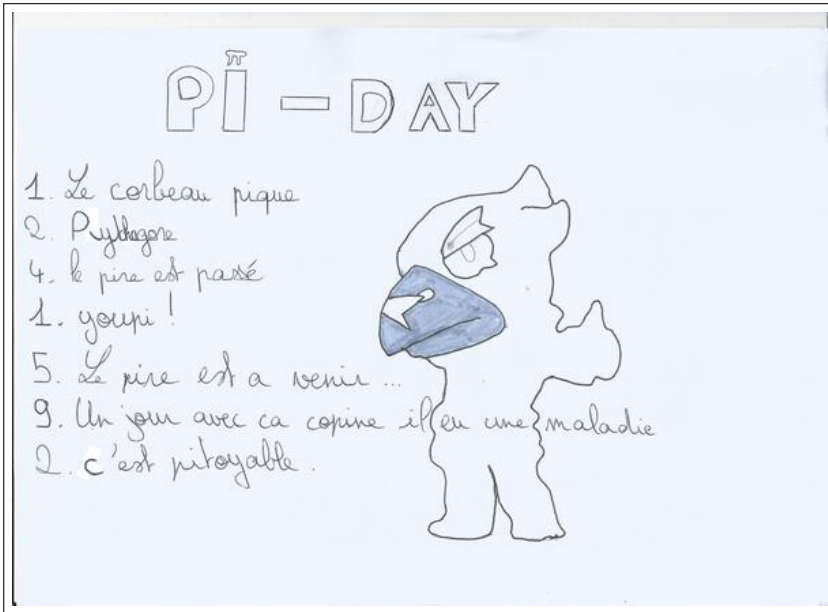 π
PI - DAY
1. Le corbeau pique
2. Pythagore
4. le pire est passé
1. youpi !
5. Le pire est a venir ...
9. Un jour avec ca copine il eu une maladie
2. c'est pitoyable.